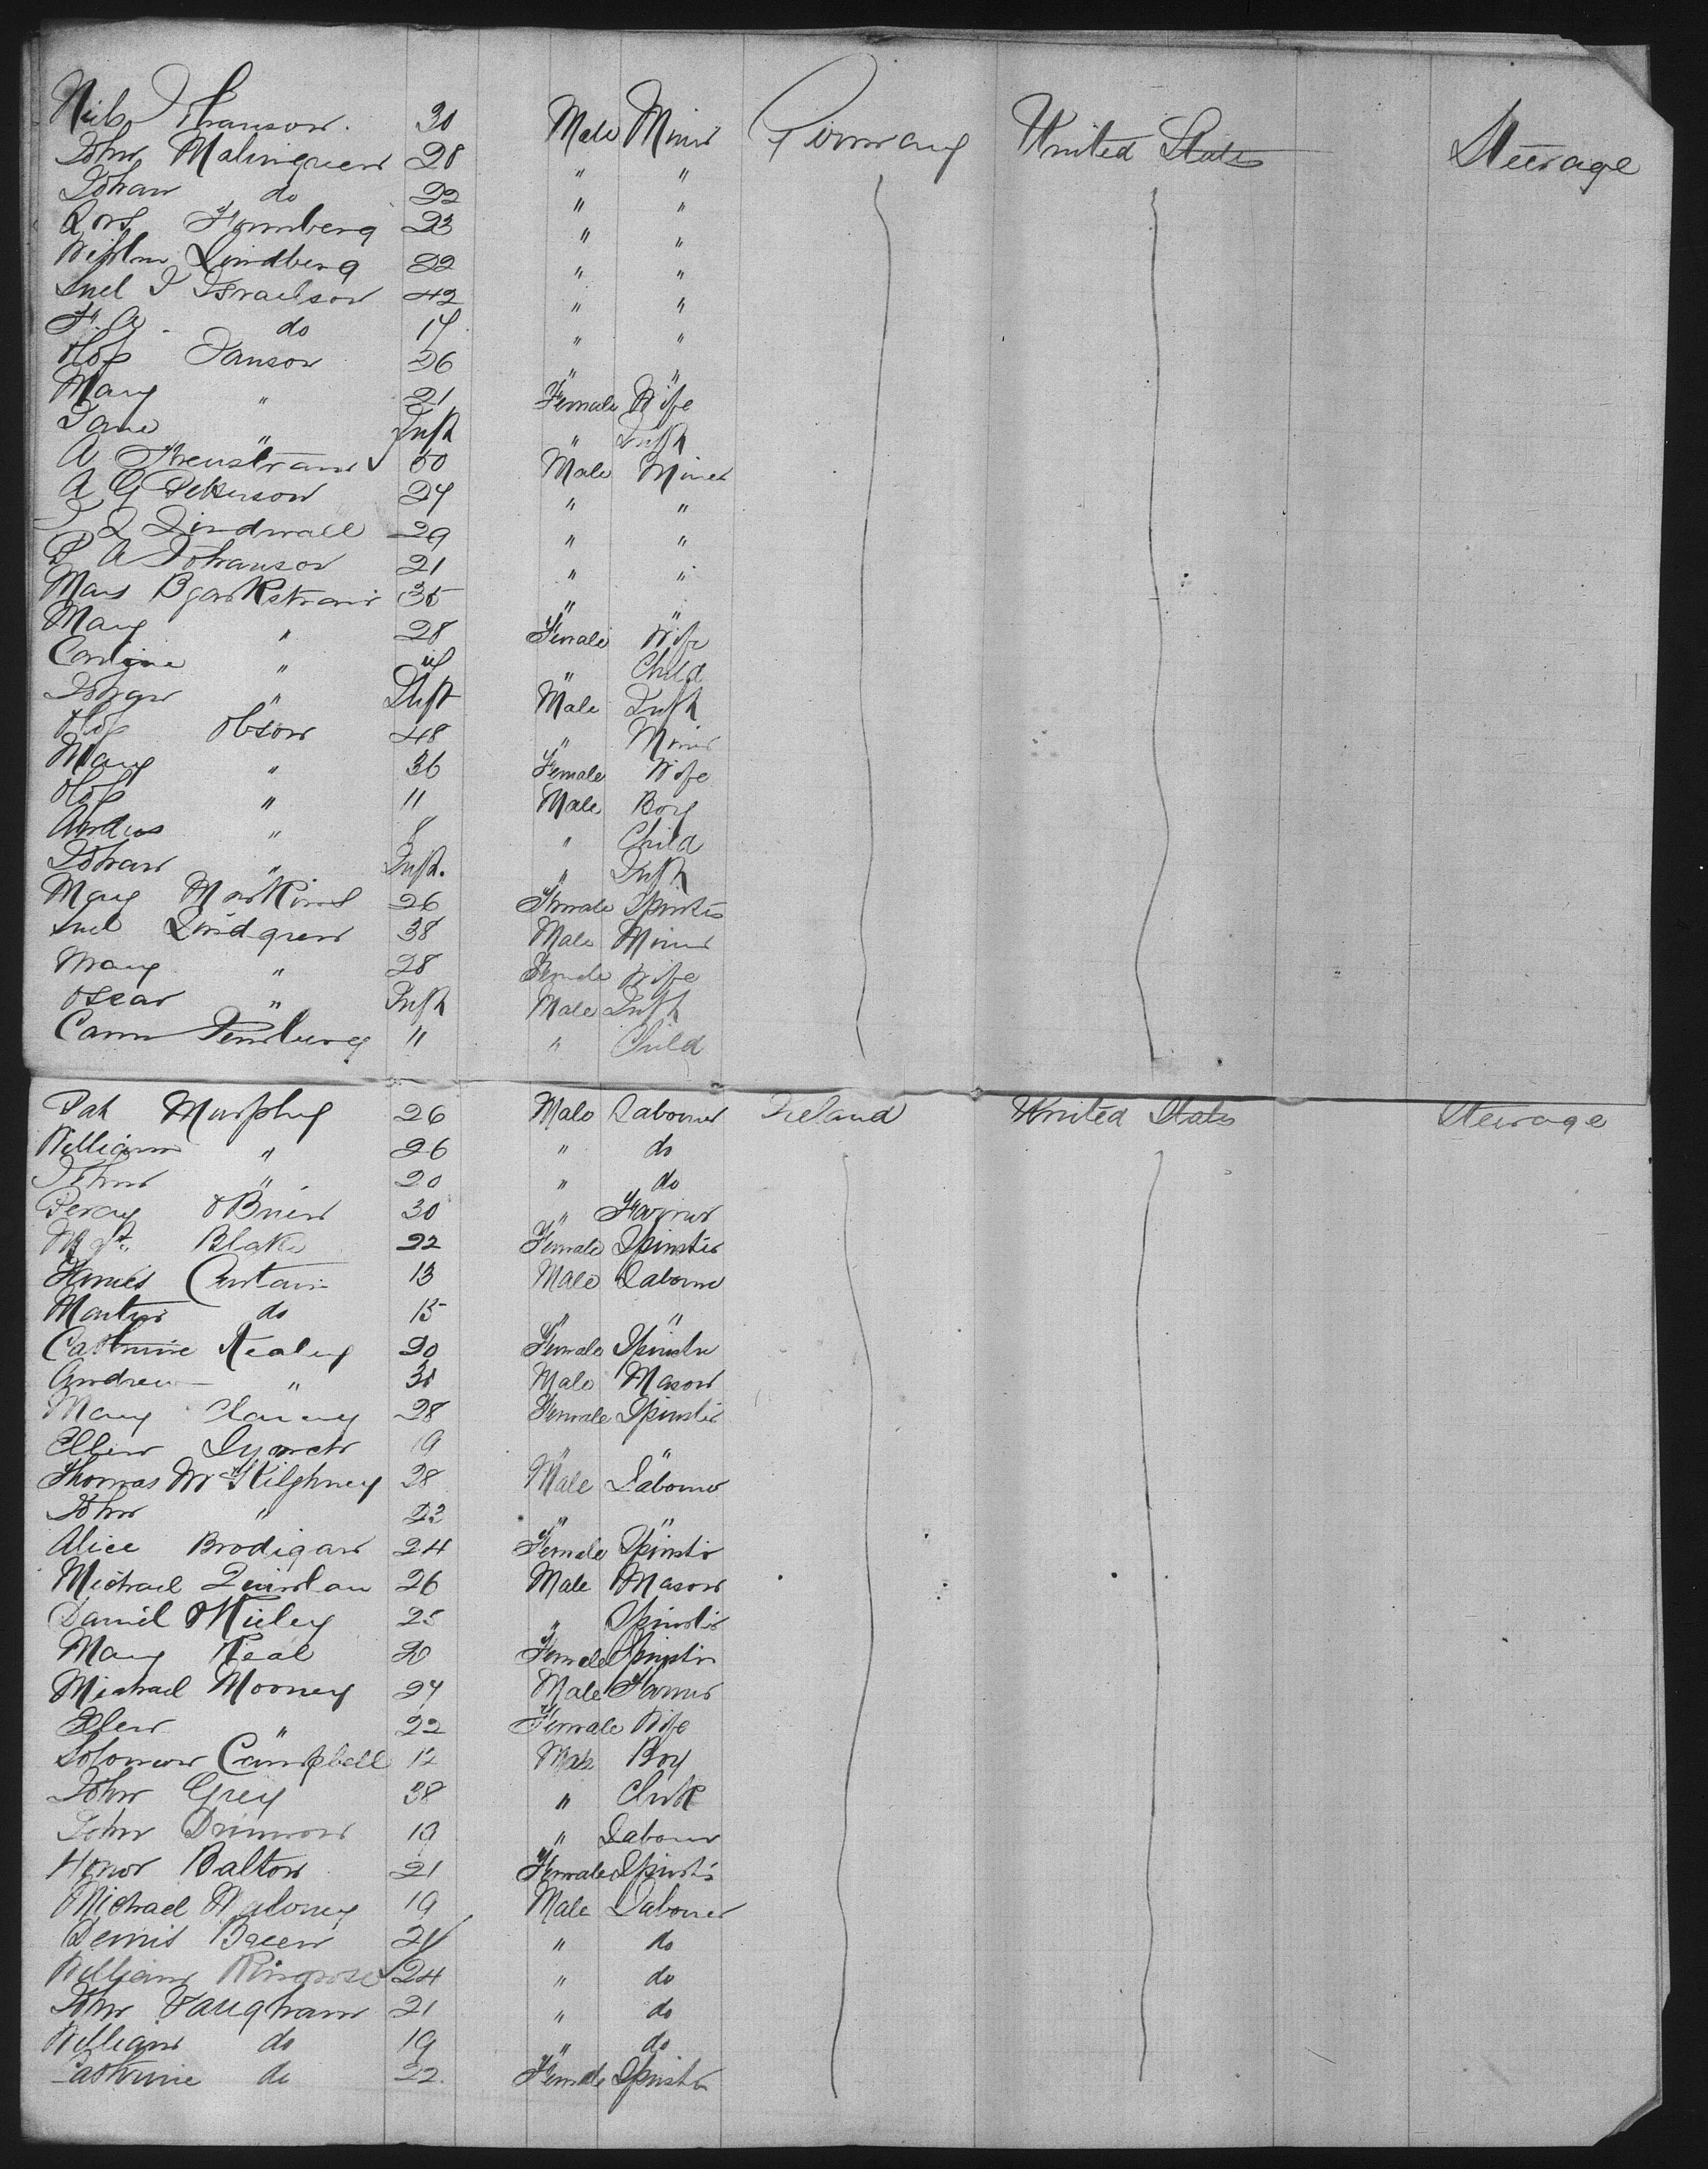 Nils Johanson 30 Male Miner Germany United States Steerage
John Malmgren 28 " "
Johan do 22 " "
Lars Formberg 23 " "
Wilhm Lindberg 22 " "
Snel J Israelson 42 " "
F. A. do 17 " "
Olof Janson 26 " "
Mary " 21 Female Wife
Jane " Inft " Inft
A Threustram 50 Male Miner
A G Peterson 24 " "
J L Lindwall 29 " "
P A Johanson 21 " "
Mans Bjorkstram 35 " "
Mary " 28 Female Wife
" " Child
Johan " Inft Male Inft
Olof Olsson 48 " Miner
Mary " 36 Female Wife
Olof " 11 Male Boy
Andrus " 8 " Child
Johan " Inft. " Inft
Mary 26 Female Spinster
Snel Lindgren 38 Male Miner
Mary " 28 Female Wife
Oscar " Inft Male Inft
Carn 11 " Child
Pat Murphy 26 Male Labourer Ireland United States Steerage
William " 26 " do
John " 20 " do
Percy OBrien 30 " Farmer
Mgt. Blake 22 Female Spinster
James Curtain 13 Male Labourer
Martin do 15 " "
Cathrine Nealey 20 Female Spinster
Andrew " 30 Male Mason
Mary Clancy 28 Female Spinster
Ellen Lynch 19 " "
Thomas Mc Kilphney 28 Male Labourer
John " 23 " "
Alice Brodigan 24 Female Spinster
Michael Quinlan 26 Male Mason
Daniel OKieley 25 " Spinster
Mary Neal 20 Female Spinster
Michael Mooney 24 Male Farmer
Ellen " 22 Female Wife
Solomon Campbell 12 Male Boy
John Grey 38 " Clerk
John 19 " Labourer
Honor Balton 21 Female Spinster
Michael Maloney 19 Male Labourer
Dennis Breen 21 " do
William Ringrose 24 " do
John Vaughan 21 " do
William do 19 " do
Cathrine do 22 Female Spinster